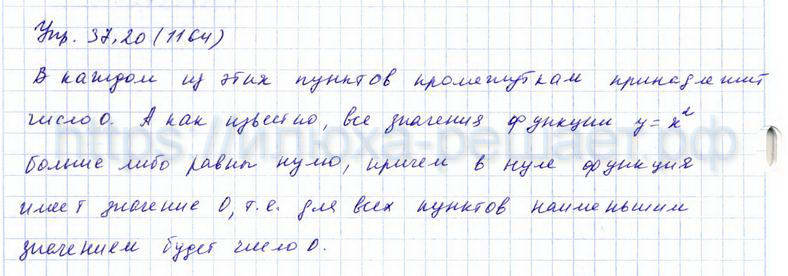 Упр. 37.20 (1164)
В каждом из этих пунктов промежуткам принадлежит
число 0. А как известно, все значения функции y = x²
https://илюха-решает.рф
больше либо равны нулю, причем в нуле функция
имеет значение 0, т.е. для всех пунктов наименьшим
значением будет число 0.